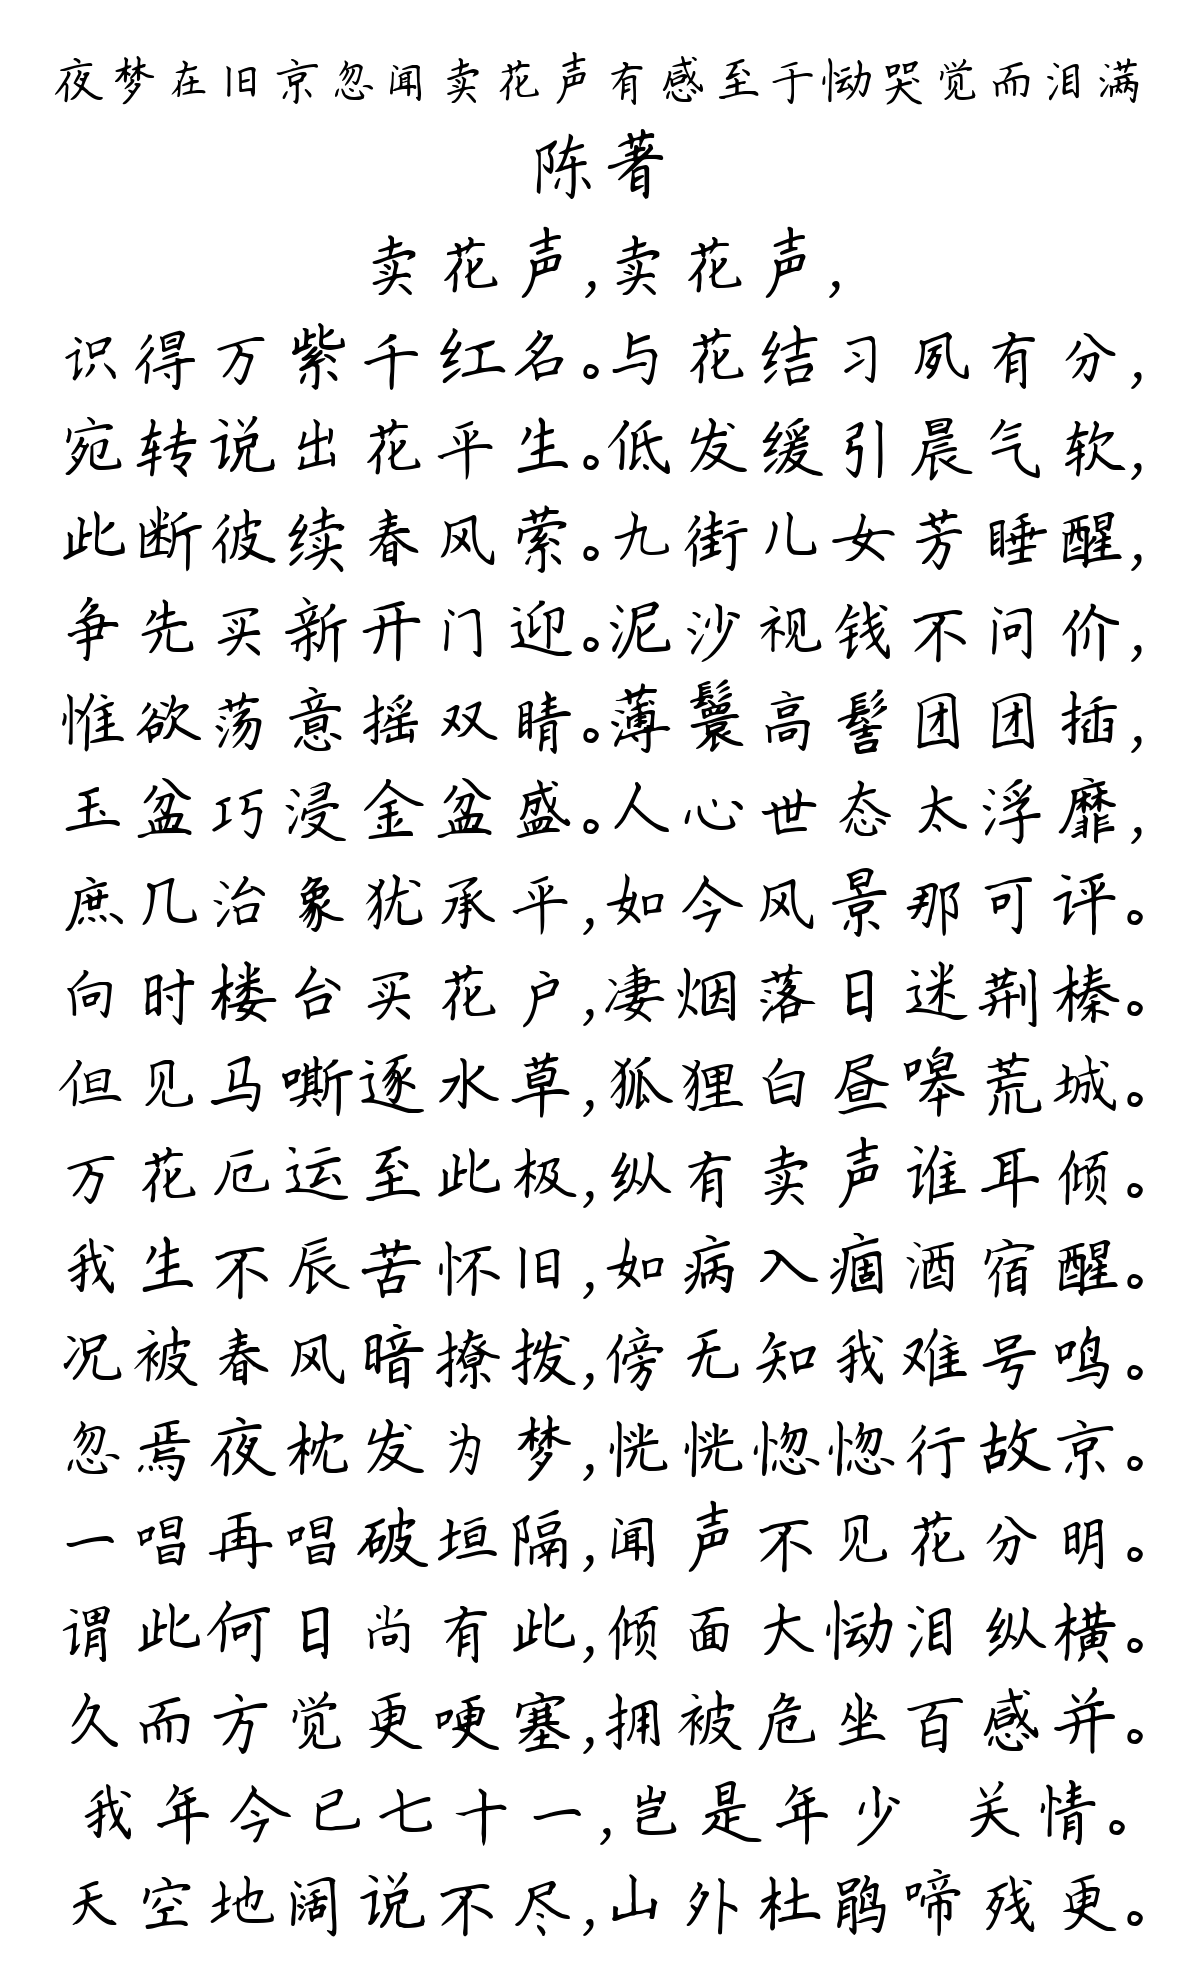 夜梦在旧京忽闻卖花声有感至于恸哭觉而泪满
陈著
卖花声,卖花声,
识得万紫千红名。与花结习夙有分,
宛转说出花平生。低发缓引晨气软,
此断彼续春风萦。九街儿女芳睡醒,
争先买新开门迎。泥沙视钱不问价,
惟欲荡意摇双睛。薄鬟高髻团团插,
玉盆巧浸金盆盛。人心世态太浮靡,
庶几治象犹承平,如今风景那可评。
向时楼台买花户,凄烟落日迷荆榛。
但见马嘶逐水草,狐狸白昼嗥荒城。
万花厄运至此极,纵有卖声谁耳倾。
我生不辰苦怀旧,如病入痼酒宿醒。
况被春风暗撩拨,傍无知我难号鸣。
忽焉夜枕发为梦,恍恍惚惚行故京。
一唱再唱破垣隔,闻声不见花分明。
谓此何日尚有此,倾面大恸泪纵横。
久而方觉更哽塞,拥被危坐百感并。
我年今已七十一,岂是年少 关情。
天空地阔说不尽,山外杜鹃啼残更。